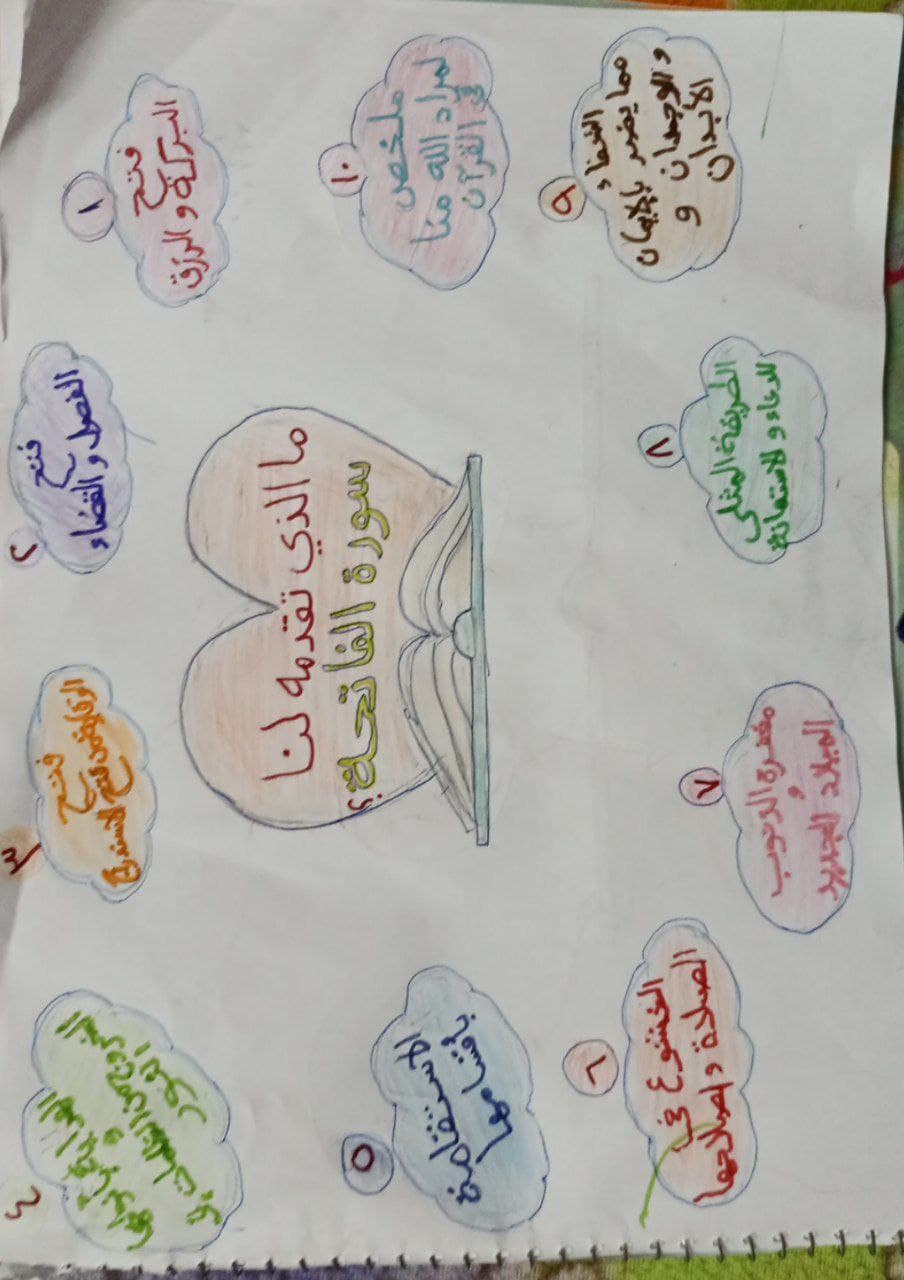 ما الذي تقدمه لنا
سورة الفاتحة؟
١
فتح
البركة و الرزق
٢
فتح
الفصل و القضاء
٣
فتح
الوقاية من فتح الاستدراج
٤
الهداية بأنواعها
و
الخروج من الظلمات
النور
٥
الاستقامة
بأقسامها
٦
الخشوع في
الصلاة و إصلاحها
٧
مغفرة الذنوب
و
الميلاد الجديد
٨
الطريقة المثلى
للدعاء و الاستعانة
٩
الشفاء
مما يضر بالإيمان
و الوجدان و
الأبدان
١٠
ملخص
لمراد الله منا
في القرآن